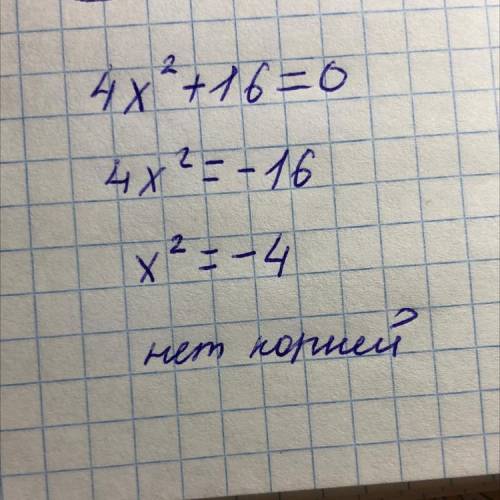 4x²+16=0
4x²=-16
x²=-4
нет корней